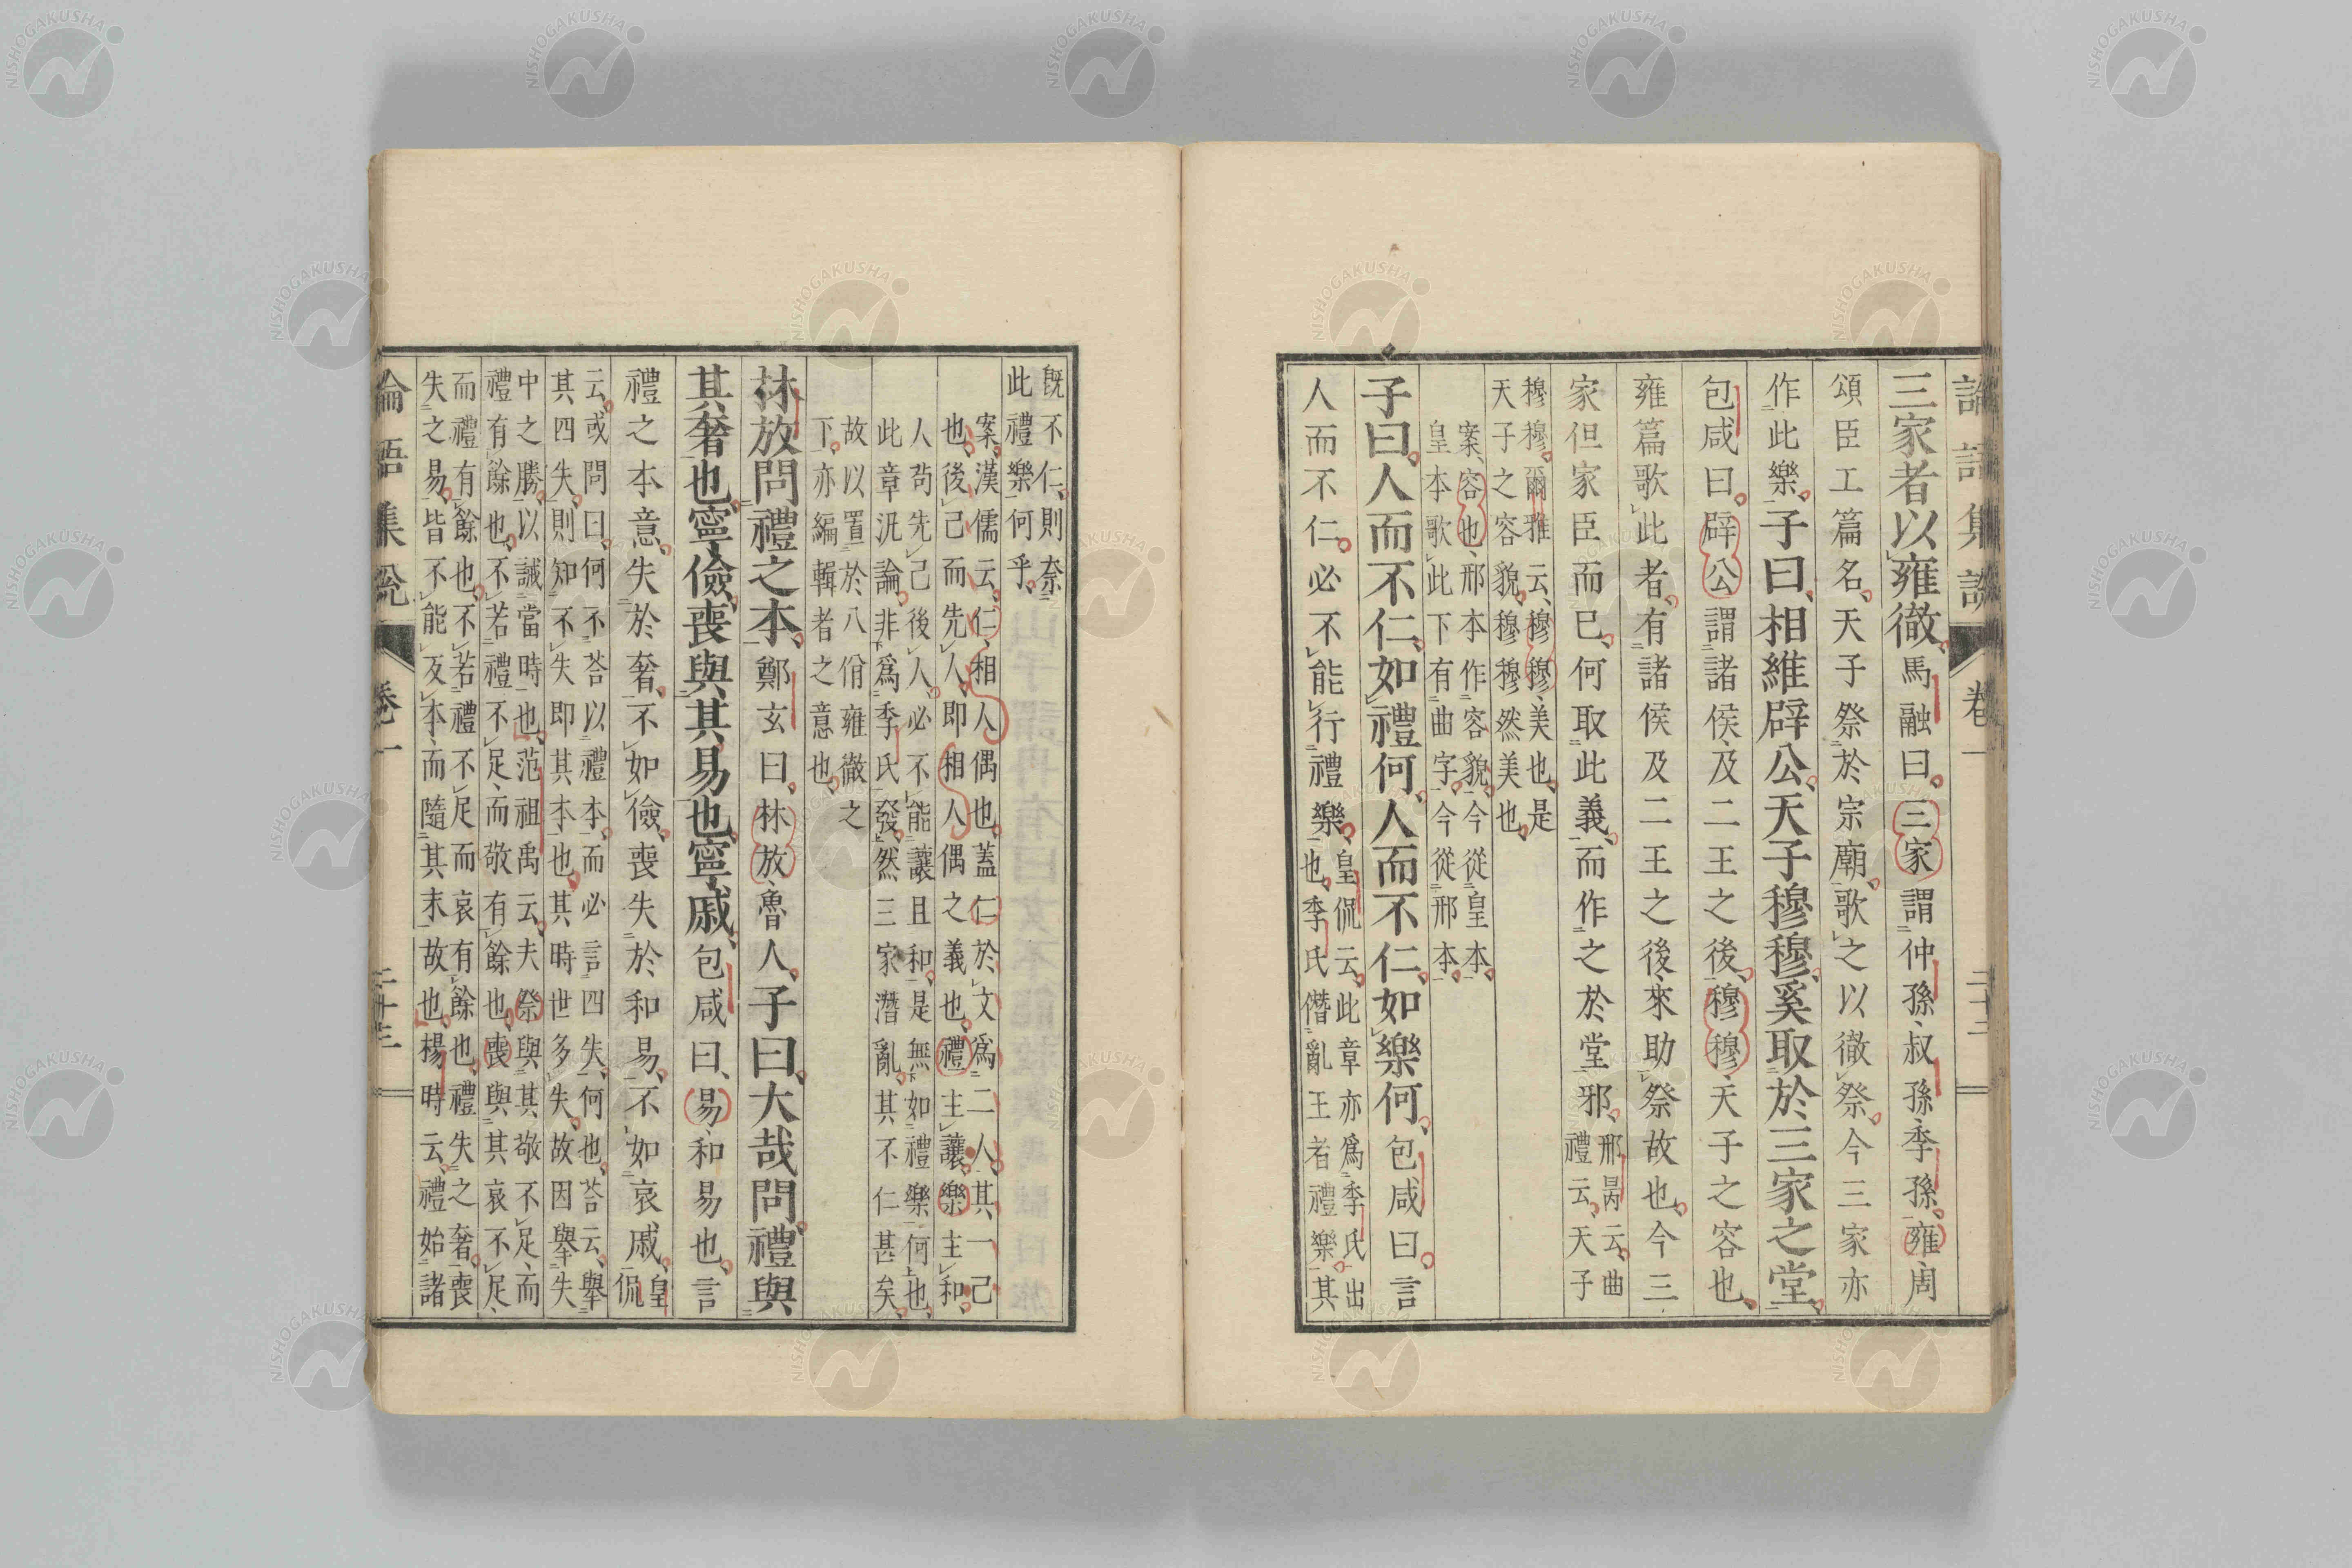 三家者以雍徹馬融曰三家謂仲孫叔孫季孫雍周
頌臣工篇名天子祭於宗廟歌之以徹祭今三家亦
作此樂子曰相維辟公天子穆穆奚取於三家之堂
包咸曰辟公謂諸侯及二王之後穆穆天子之容也
雍篇歌此者有諸侯及二王之後來助祭故也今三
家但家臣而已何取此義而作之於堂邪
邢昺云曲
禮云天子
穆穆爾雅云穆穆美也是
天子之容貌穆穆然美也
案容也邢本作容貌今從皇本
皇本歌此下有曲字今從邢本
子曰人而不仁如禮何人而不仁如樂何包咸曰言
人而不仁必不能行禮樂
皇侃云此章亦爲季氏出
也季氏僭亂王者禮樂其
既不仁則奈
此禮樂何乎
案漢儒云仁相人偶也蓋仁於文爲二人其一己
也後己而先人即相人偶之義也禮主讓樂主和
人苟先己後人必不能讓且和是無如禮樂何也
此章汎論非爲季氏發然三家潛亂其不仁甚矣
故以置於八佾雍徹之
下亦編輯者之意也
林放問禮之本鄭玄曰林放魯人子曰大哉問禮與
其奢也寧儉喪與其易也寧戚包咸曰易和易也言
禮之本意失於奢不如儉喪失於和易不如哀戚
皇
侃
云或問曰何不荅以禮本而必言四失何也荅云舉
其四失則知不失即其本也其時世多失故因舉失
中之勝以誡當時也范祖禹云夫祭與其敬不足而
禮有餘也不若禮不足而敬有餘也喪與其哀不足
而禮有餘也不若禮不足而哀有餘也禮失之奢喪
失之易皆不能反本而隨其末故也楊時云禮始諸
論語集說 卷一 二十二
論語集說 卷一 二十三
NISHOGAKUSHA